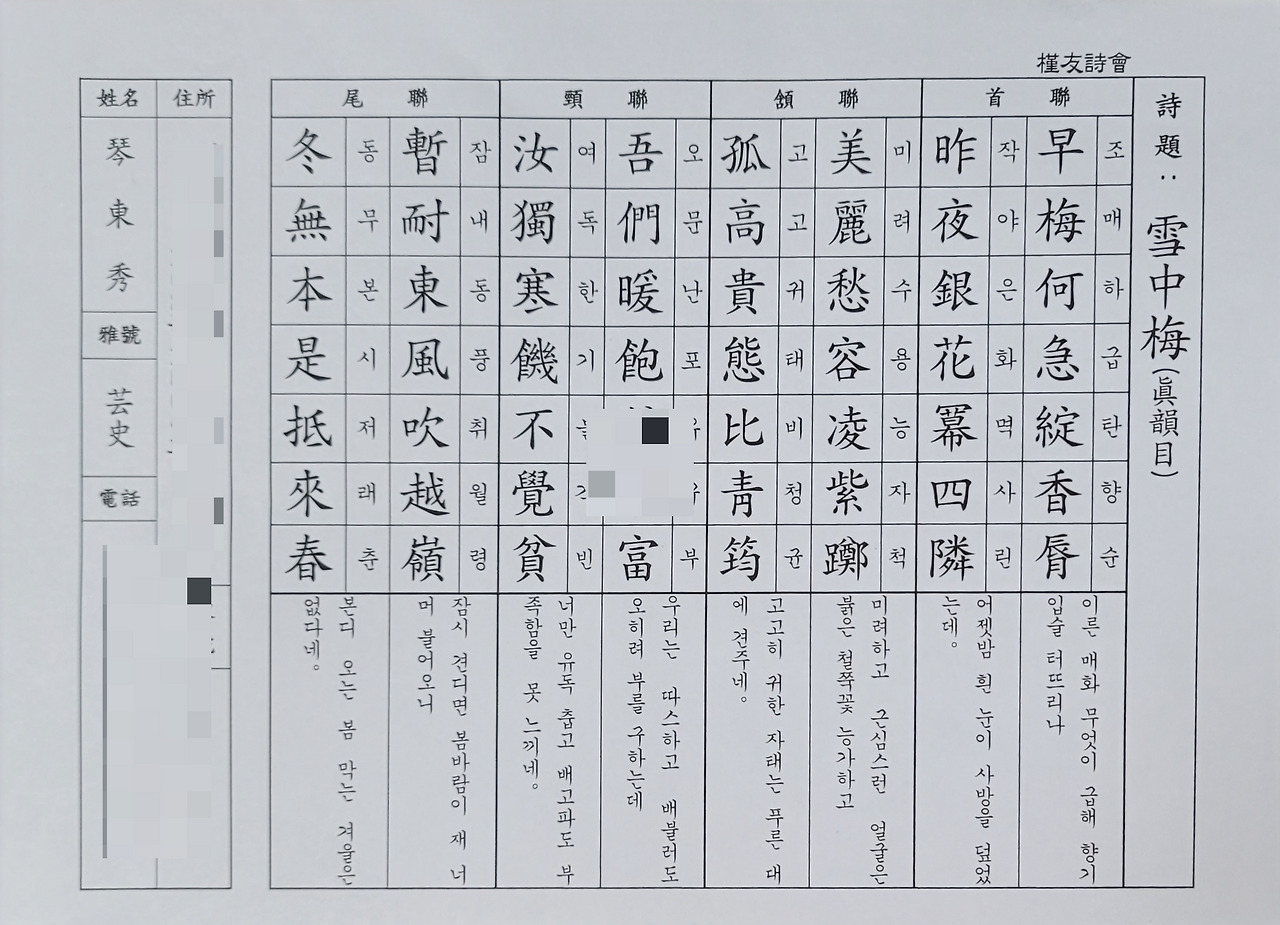 槿友詩會
詩題: 雪中梅(眞韻目)
首聯
조매하급탄향순
早梅何急綻香脣
이른 매화 무엇이 급해 향기
입술 터뜨리나
작야은화멱사린
昨夜銀花冪四隣
어젯밤 흰 눈이 사방을 덮었
는데。
頷聯
미려수용능자척
美麗愁容凌紫躑
미려하고 근심스런 얼굴은
붉은 철쭉꽃 능가하고
고고귀태비청균
孤高貴態比靑筠
고고히 귀한 자태는 푸른 대
에 견주네。
頸聯
오문난포 부
吾們暖飽 富
우리는 따스하고 배불러도
오히려 부를 구하는데
여독한기 빈
汝獨寒饑不覺貧
너만 유독 춥고 배고파도 부
족함을 못 느끼네。
尾聯
잠내동풍취월령
暫耐東風吹越嶺
잠시 견디면 봄바람이 재 너
머 불어오니
동무본시저래춘
冬無本是抵來春
본디 오는 봄 막는 겨울은
없다네。
住所
姓名
琴東秀
雅號
芸史
電話